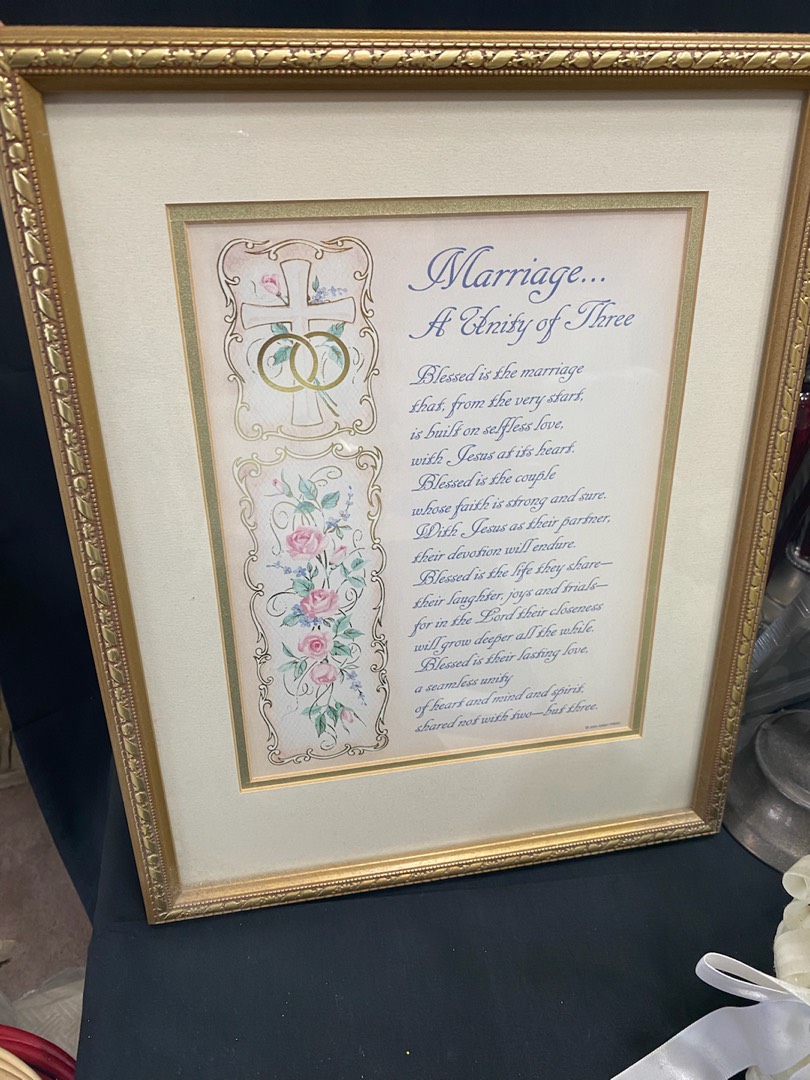 Marriage...
A Unity of Three
Blessed is the marriage
that, from the very start,
is built on selfless love,
with Jesus at its heart.
Blessed is the couple
whose faith is strong and sure.
With Jesus as their partner,
their devotion will endure.
Blessed is the life they share—
their laughter, joys and trials—
for in the Lord their closeness
will grow deeper all the while.
Blessed is their lasting love,
a seamless unity
of heart and mind and spirit,
shared not with two—but three.